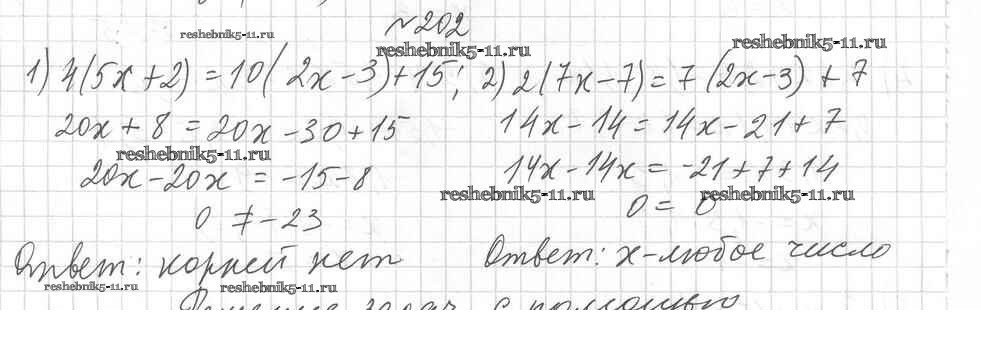 №202
reshebnik5-11.ru
reshebnik5-11.ru
reshebnik5-11.ru
1) 4(5x+2) = 10(2x-3)+15; 2) 2(7x-7) = 7(2x-3) + 7
20x + 8 = 20x - 30 + 15
14x - 14 = 14x - 21 + 7
reshebnik5-11.ru
20x - 20x = -15 - 8
14x - 14x = -21 + 7 + 14
reshebnik5-11.ru
reshebnik5-11.ru
0 ≠ -23
0 = 0
Ответ: корней нет
Ответ: x - любое число
reshebnik5-11.ru
reshebnik5-11.ru
Решение задач с помощью